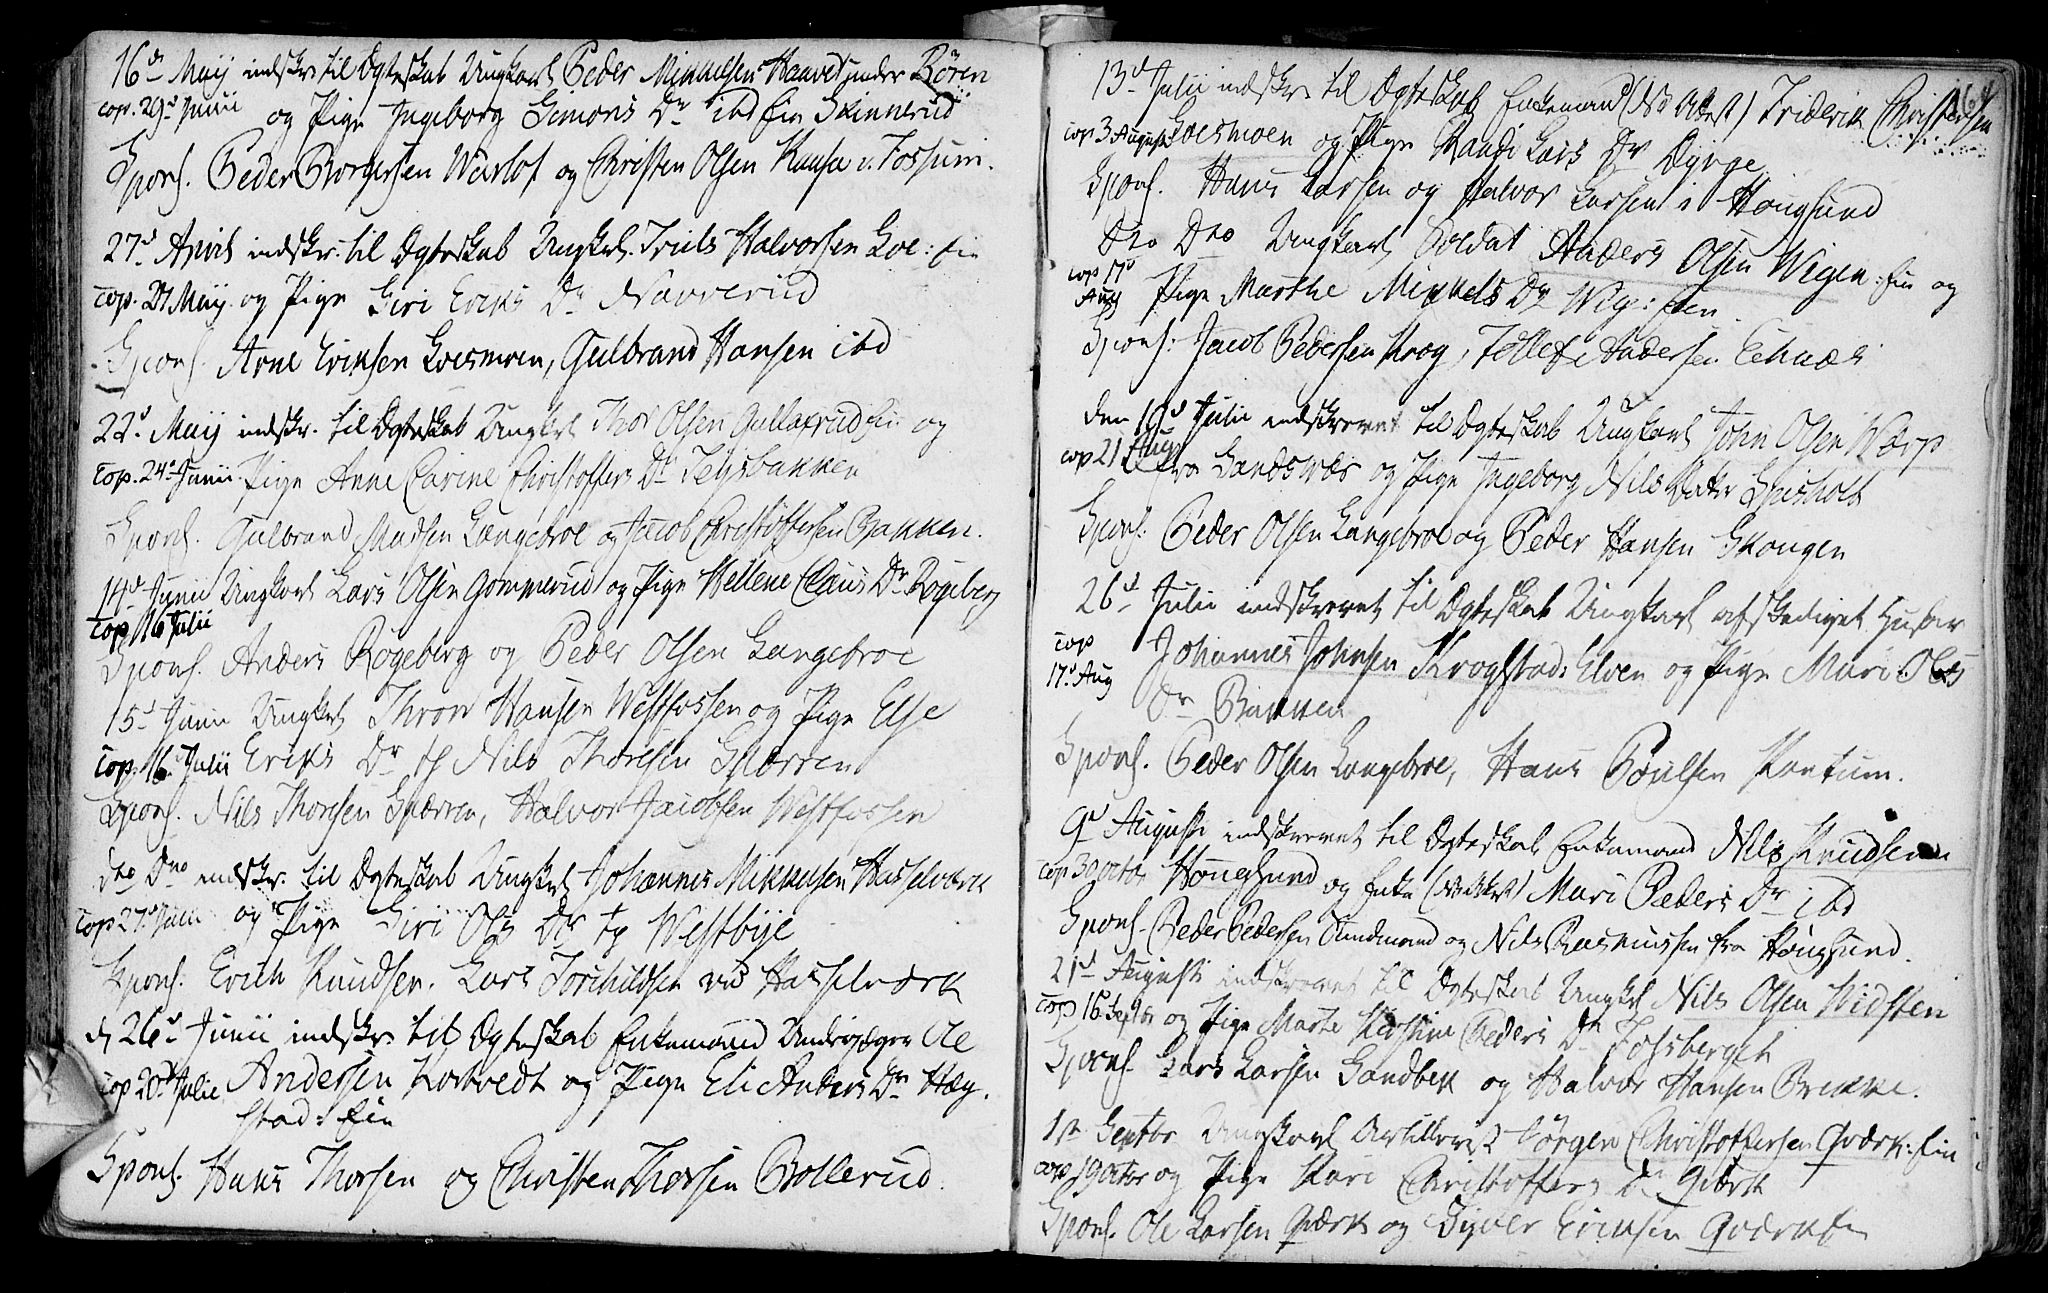 16de Maij indskr. til Ægteskab Ungkarl Peder Mikkelsen Haavet under Bören
cop. 29d Junii og Pige Ingeborg Simons Dr ibd Skinnerud
Spons. Peder Borgersen Warlos og Christen Olsen Fossum.
27d April indskr. til Ægteskab Ungkarl Truls Halvorsen Loe: Ein
cop. 27 Maij og Pige Siri Eriks Dr Navverud
Spons. Arne Eriksen Loesmoen, Gulbrand Hansen ibd
22d Maij indskr. til Ægteskab Ungkarl Thor Olsen Gullaxrud Ein og
cop. 24de Junii Pige Anne Carine Christoffers Dr Teigsbakken
Spons. Gulbrand Madsen Langebroe og Jacob Christoffersen Bakken.
14d Junii Ungkarl Lars Olsen Gommerud og Pige Hellene Claus Dr Rogeberg
cop. 16 Julii
Spons. Anders Rögeberg og Peder Olsen Langebroe
15d Junii Ungkarl Thron Hansen Westfossen og Pige Else
cop. 16 Julii Eriks Dr Nils Thoresen Sperren
Spons. Nils Thoresen Sperren, Halvor Jacobsen Westfossen
Dto Dto indskr. til Ægteskab Ungkarl Johannes Mikkelsen Hasselværk
cop 27d og Pige Siri Ols Dr Westbye
Spons: Erich Knudsen. Lars Torchildsen ved Hasselværk
d 26d Junii indskr. til Ægteskab Enkemand Ole
cop 20d Julii Andersen Kortvedt og Pige Eli Anders Dr Hæg.
stad: Ein
Spons. Hans Thorsen og Christen Thorsen Bollerud.
13d Julii indskr. til Ægteskab Enkemand Friderik Christensen
cop 3 August Loesmoen og Pige Randi Lars Dr Dynge
Spons. Hans Larsen og Halvor Larsen i Hougsund
Dto Dto Ungkarl Soldat Anders Olsen Wegen: Ein og
cop 17d Aug Pige Marthe Mikkels Dr Weg: Een
Spons: Jacob Pedersen Krog, Tollef Andersen Eknæs
den 19d Julii indskrevet til Ægteskab Ungkarl John Olsen Wærp
cop 21 Aug fra Sandsvær og Pige Ingeborg Nils Datter
Spons: Peder Olsen Langebroe og Peder Hansen Skougen
26d Julii indskrevet til Ægteskab Ungkarl afskediget Husar
cop 17d Aug Johannes Johnsen Krogstad: Elven og Pige Mari Ols
Dr Bakken
Spons. Peder Olsen Langebroe, Hans Poulsen Kortum.
9d Augusti indskrevet til Ægteskab Enkemand Nils Knudsen
cop 30 Octbr Hougsund og Enke Mari Peders Dr ibd
Spons. Peder Pedersen og Nils Rasmussen fra Hougsund.
21d Augusti indskrevet til Ægteskab Ungkarl Nils Olsen Widsten
cop 16 Septbr og Pige Marte Kirstine Peders Dr Fossberget
Spons. Lars Larsen Sandbek og Halvor Hansen Brekke.
1st Septbr Ungkarl Artillerist Jörgen Christoffersen Qværk: Ein
cop 19 Octbr og Pige Kari Christoffers Dr Qværk
Spons. Ole Larsen Qværk og Syver Eriksen Qværk